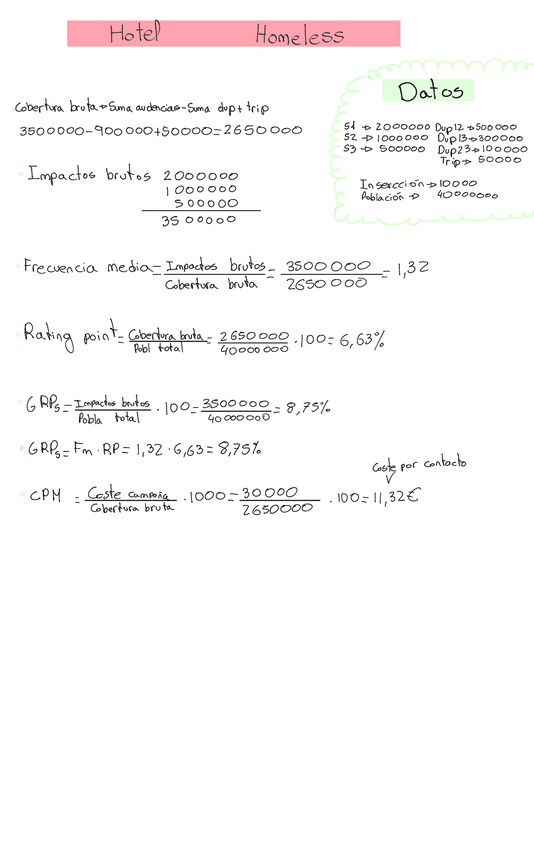 Hotel Homeless
Datos
S1 → 2000000 Dup12→500000
S2 → 1000000 Dup13→300000
S3 → 500000 Dup23→100000
Trip→ 50000
Insercción→10000
Población → 40000000
Cobertura bruta→Suma audencias-Suma dup+trip
3500000-900000+50000=2650000
Impactos brutos 2000000
1000000
500000
3500000
Frecuencia media=Impactos brutos/Cobertura bruta=3500000/2650000=1,32
Rating point=Cobertura bruta/Pobl total=2650000/40000000·100=6,63%
GRPs=Impactos brutos/Pobla total·100=3500000/40000000=8,75%
GRPs=Fm·RP=1,32·6,63=8,75%
Coste por contacto
CPM =Coste campaña/Cobertura bruta·1000=30000/2650000·100=11,32€